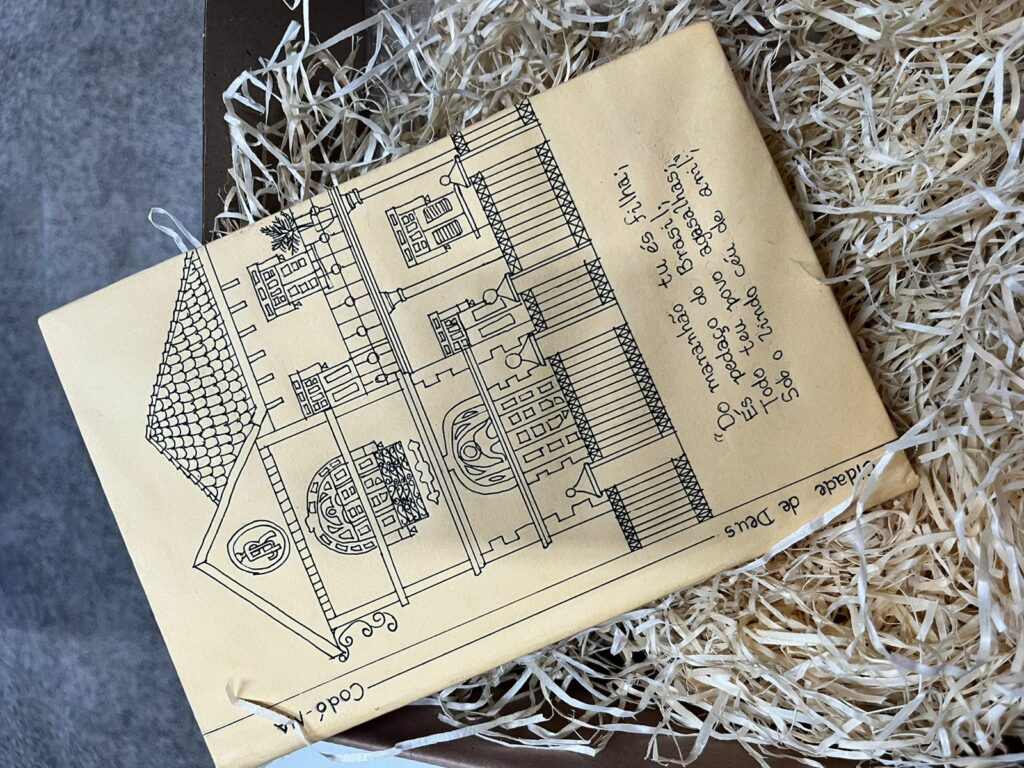 "Do maranhão tu és filha;
És pedaço do Brasil;
Todo teu povo agasalhas;
Sob o lindo céu de anil;
Cidade de Deus
Codó - Ma